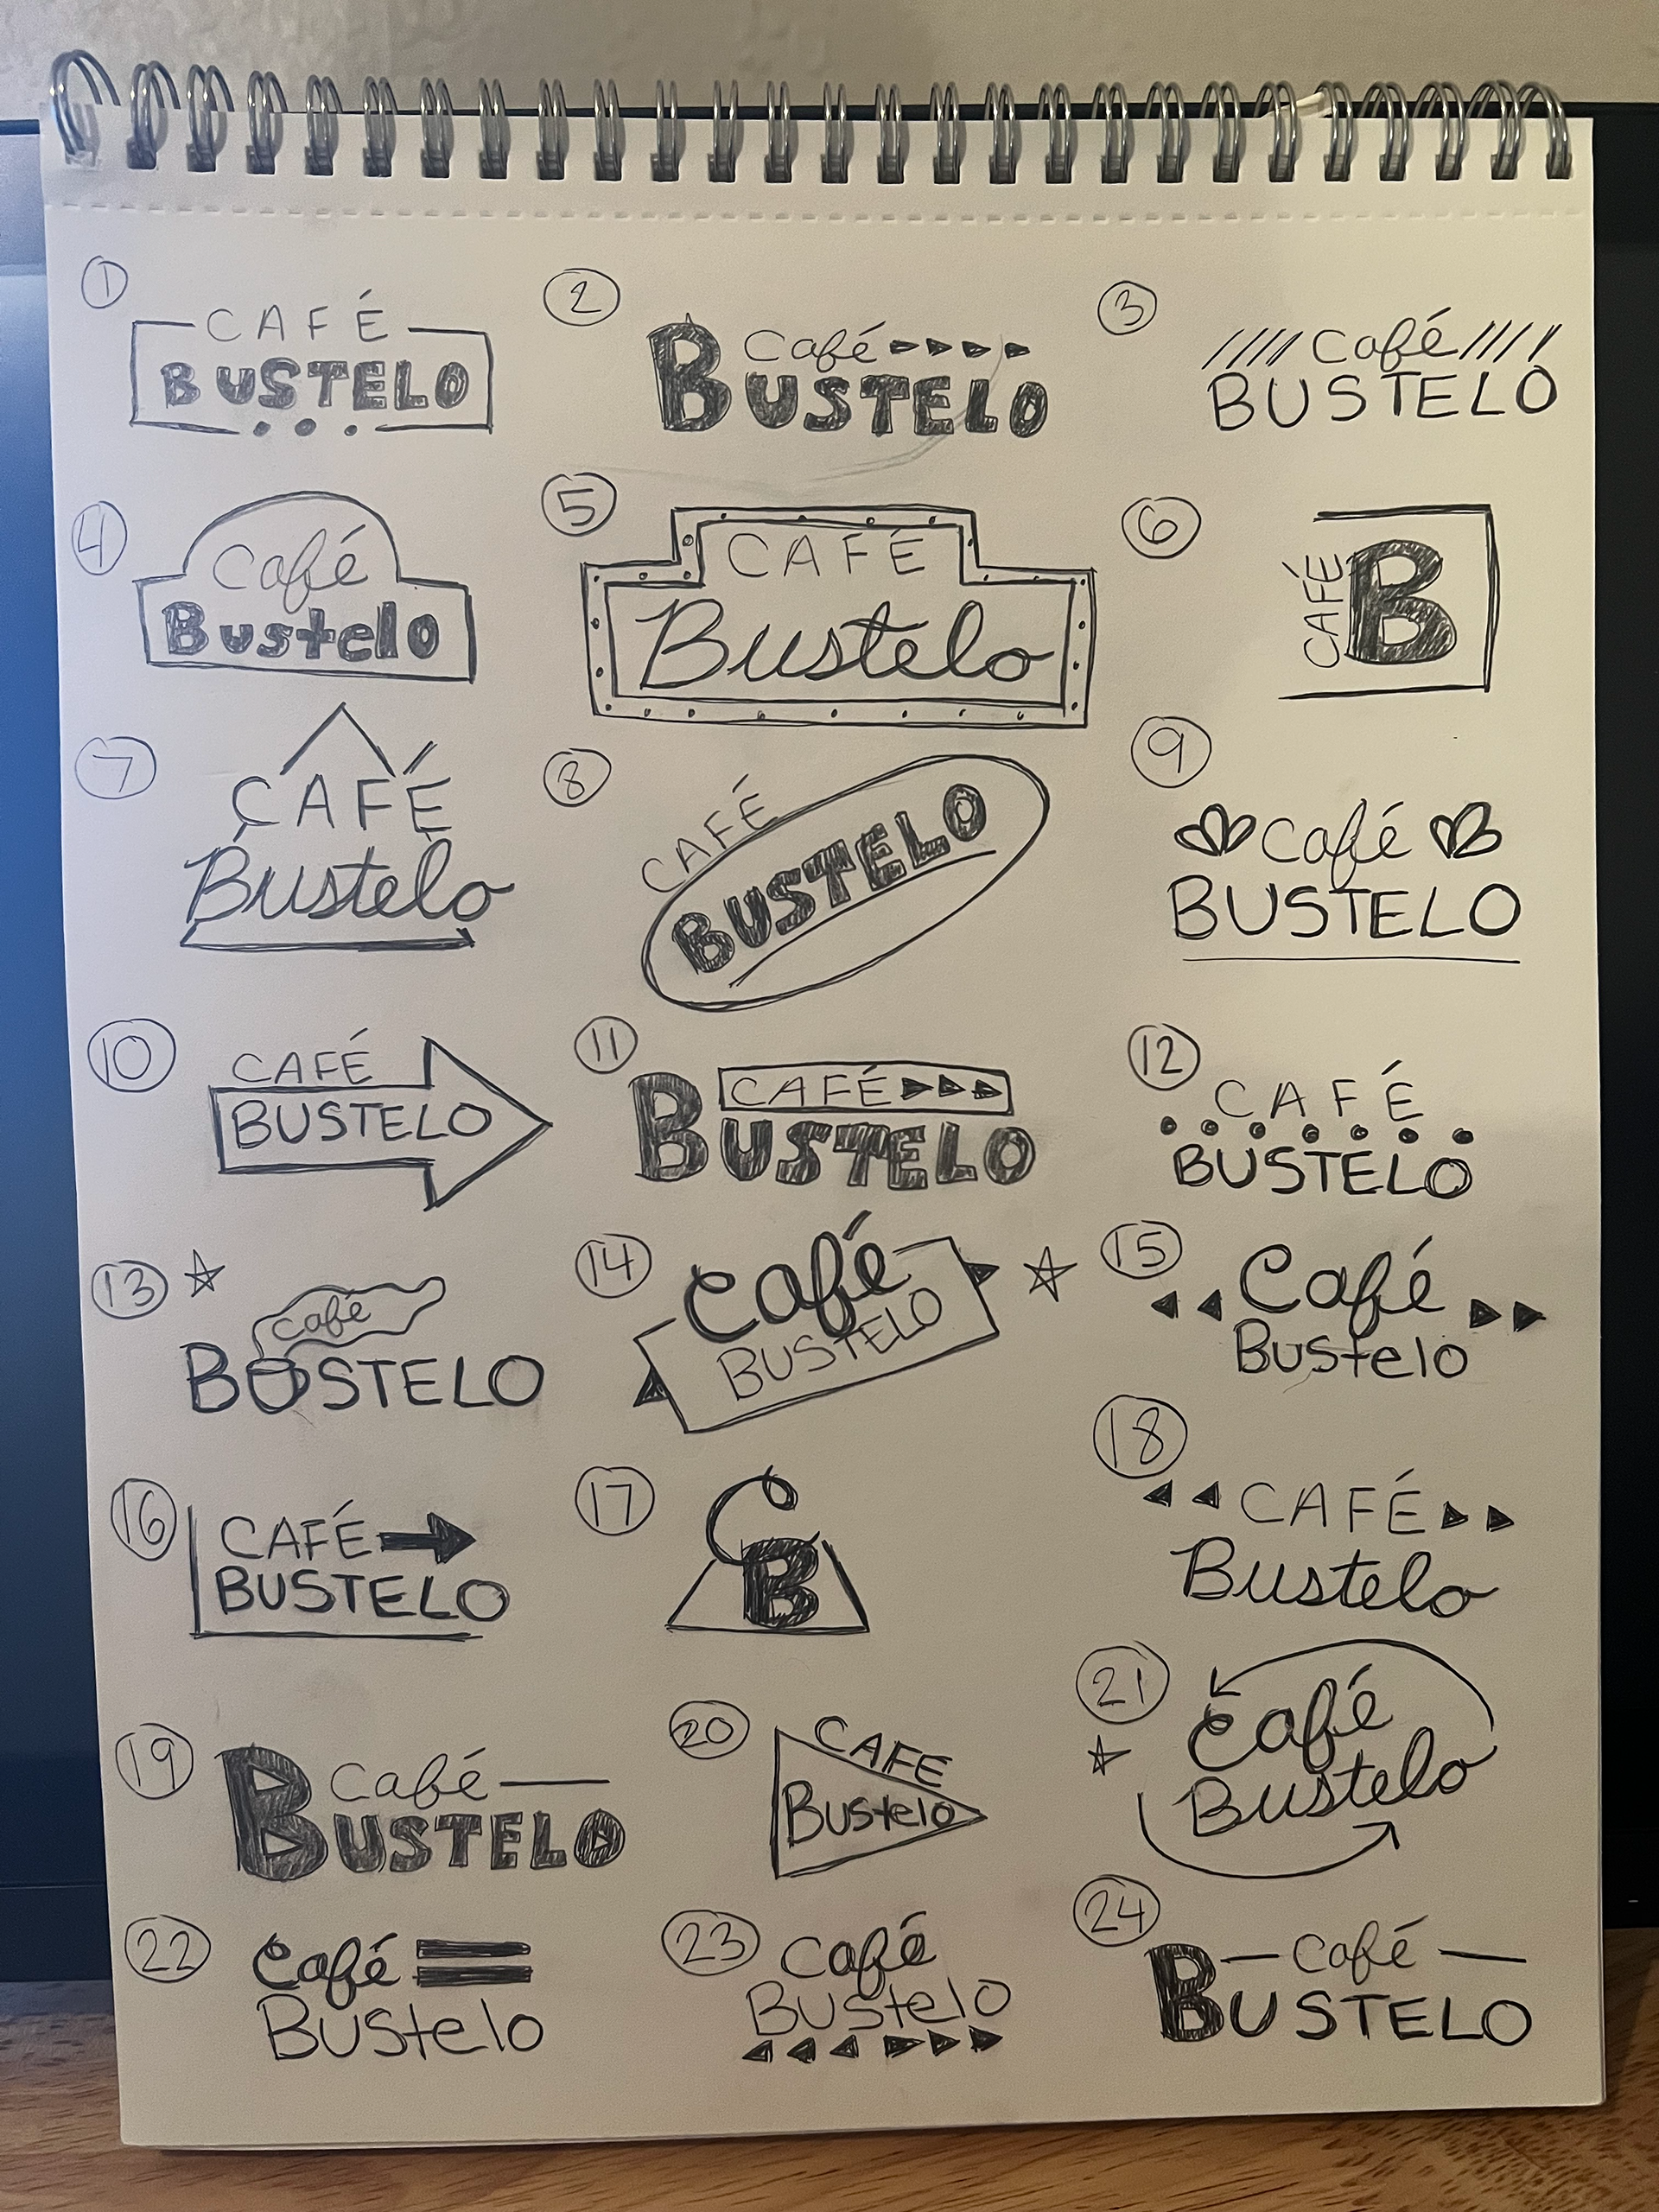 1
CAFÉ
BUSTELO
2
Café
BUSTELO
3
Café
BUSTELO
4
Café
Bustelo
5
CAFÉ
Bustelo
6
CAFÉ
B
7
CAFÉ
Bustelo
8
CAFÉ
BUSTELO
9
Café
BUSTELO
10
CAFÉ
BUSTELO
11
CAFÉ
BUSTELO
12
CAFÉ
BUSTELO
13
Café
BUSTELO
14
Café
BUSTELO
15
Café
Bustelo
16
CAFÉ
BUSTELO
17
C
B
18
CAFÉ
Bustelo
19
Café
BUSTELO
20
CAFÉ
Bustelo
21
Café
Bustelo
22
Café
Bustelo
23
Café
Bustelo
24
Café
BUSTELO